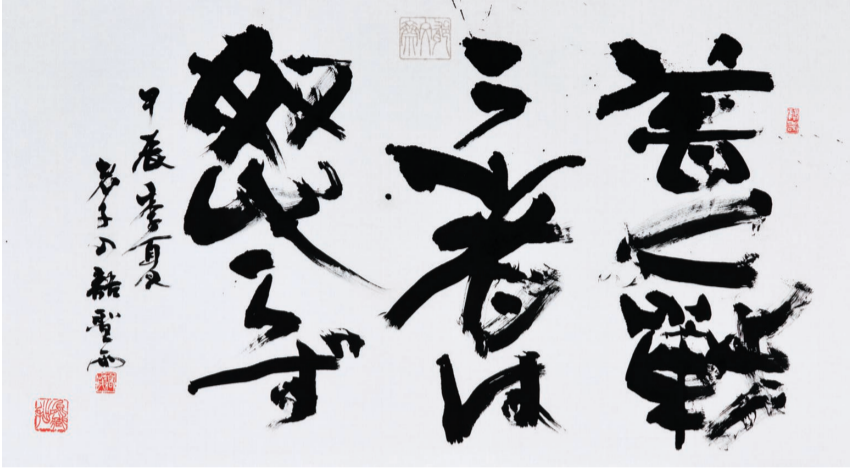 善く戰
う者は
怒らず
甲辰季夏
老子の語